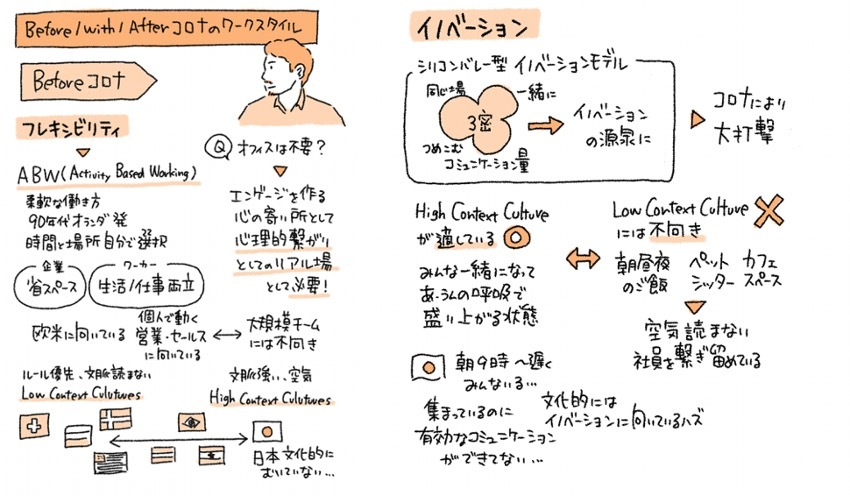 Before/with/Afterコロナのワークスタイル
Beforeコロナ
フレキシビリティ
ABW(Activity Based Working)
柔軟な働き方
90年代オランダ発
時間と場所自分で選択
企業
省スペース
ワーカー
生活/仕事両立
欧米に向いている
個人で動く
営業・セールス
に向いている
大規模チーム
には不向き
ルール優先、文脈読まない
Low Context Culutures
文脈強い、空気
High Context Culutures
日本文化的に
むいていない…
Q オフィスは不要?
エンゲージを作る
心の寄り所として
心理的繋がり
としてのリアル場
として必要!
イノベーション
シリコンバレー型 イノベーションモデル
同じ場
一緒に
3密
つめこむ
コミュニケーション量
イノベーション
の源泉に
コロナにより
大打撃
High Context Culuture
が適している
みんな一緒になって
あ・うんの呼吸で
盛り上がる状態
Low Context Culture
には不向き
朝昼夜
のご飯
ペット
シッター
カフェ
スペース
空気読まない
社員を繋ぎ留めている
朝9時〜遅く
みんないる…
集まっているのに
有効なコミュニケーション
ができてない…
文化的には
イノベーションに向いているハズ